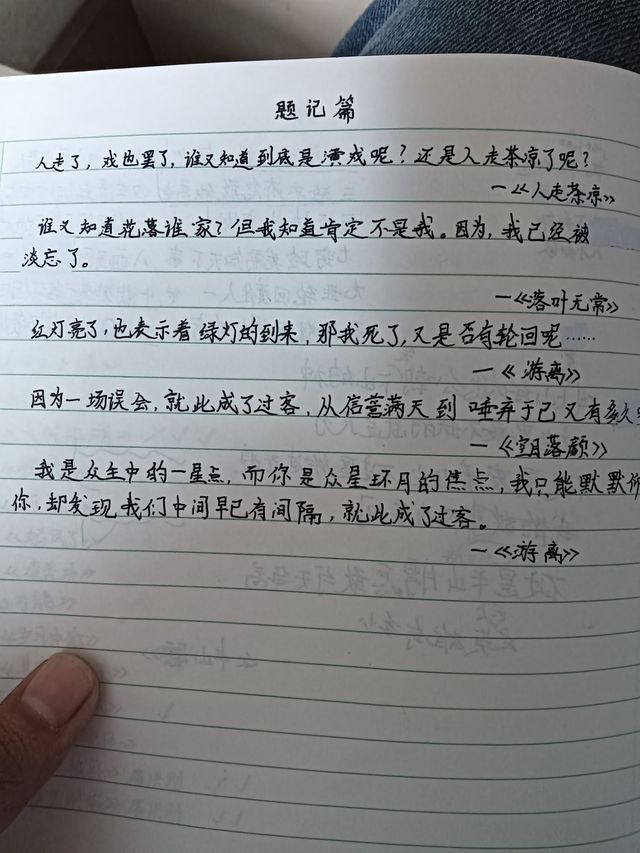 题记篇
人走了，戏也罢了，谁又知道到底是演戏呢？还是人走茶凉了呢？
—《人走茶凉》
谁又知道花落谁家？但我知道肯定不是我。因为，我已经被
淡忘了。
—《落叶无常》
红灯亮了，也表示着绿灯的到来，那我死了，又是否有轮回呢……
—《游离》
因为一场误会，就此成了过客，从信誓满天到唾弃于已又有多久
—《空月落颜》
我是众生中的一星点，而你是众星环月的焦点，我只能默默
你，却发现我们中间早已有间隔，就此成了过客。
—《游离》